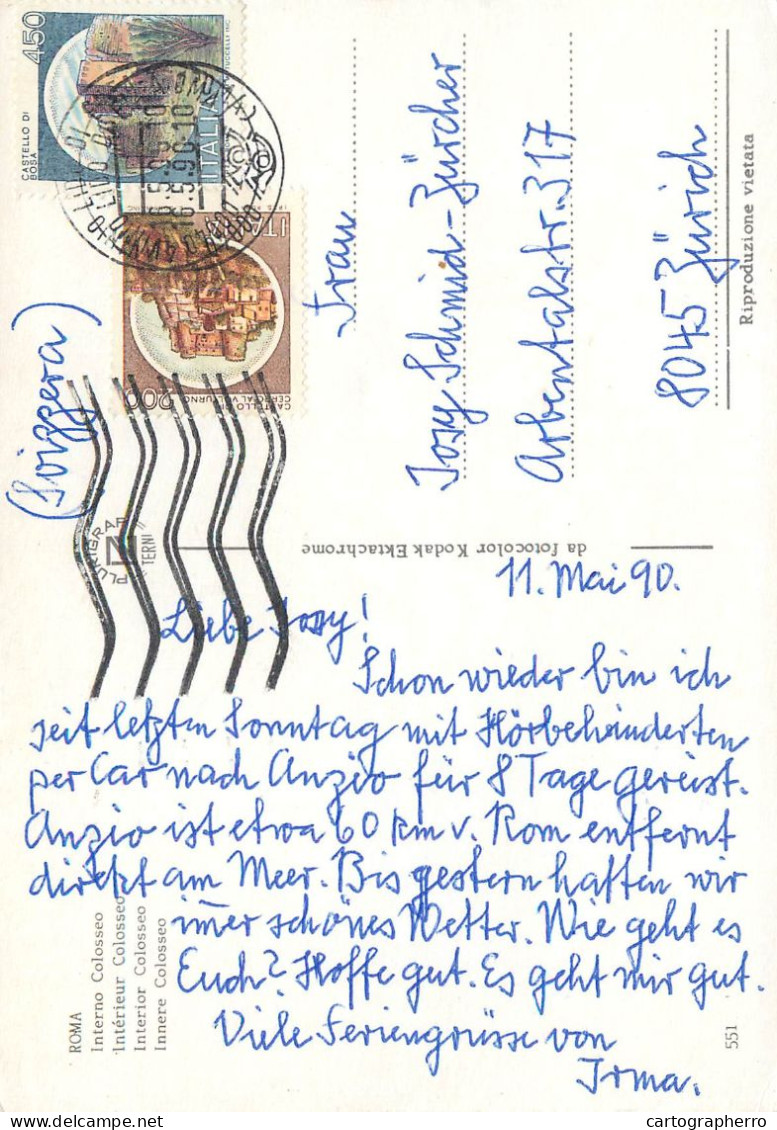 450
CASTELLO DI
BOSA
ITALIA
16.5.90.10
ITALIA
200
CASTELLO DI
CERRO AL VOLTURNO
(Svizzera)
Frau
Josy Schmid-Zürcher
Arbentalstr. 317
8045 Zürich
Riproduzione vietata
PLURIGRAF
TERNI
da fotocolor Kodak Ektachrome
11. Mai 90.
Liebe Josy!
Schon wieder bin ich
seit letzten Sonntag mit Hörbehinderten
per Car nach Anzio für 8 Tage gereist.
Anzio ist etwa 60 km v. Rom entfernt
direkt am Meer. Bis gestern hatten wir
imer schönes Wetter. Wie geht es
Euch? Hoffe gut. Es geht mir gut.
Viele Feriengrüsse von
Irma.
ROMA
Interno Colosseo
Intérieur Colosseo
Interior Colosseo
Innere Colosseo
551
cartographerro